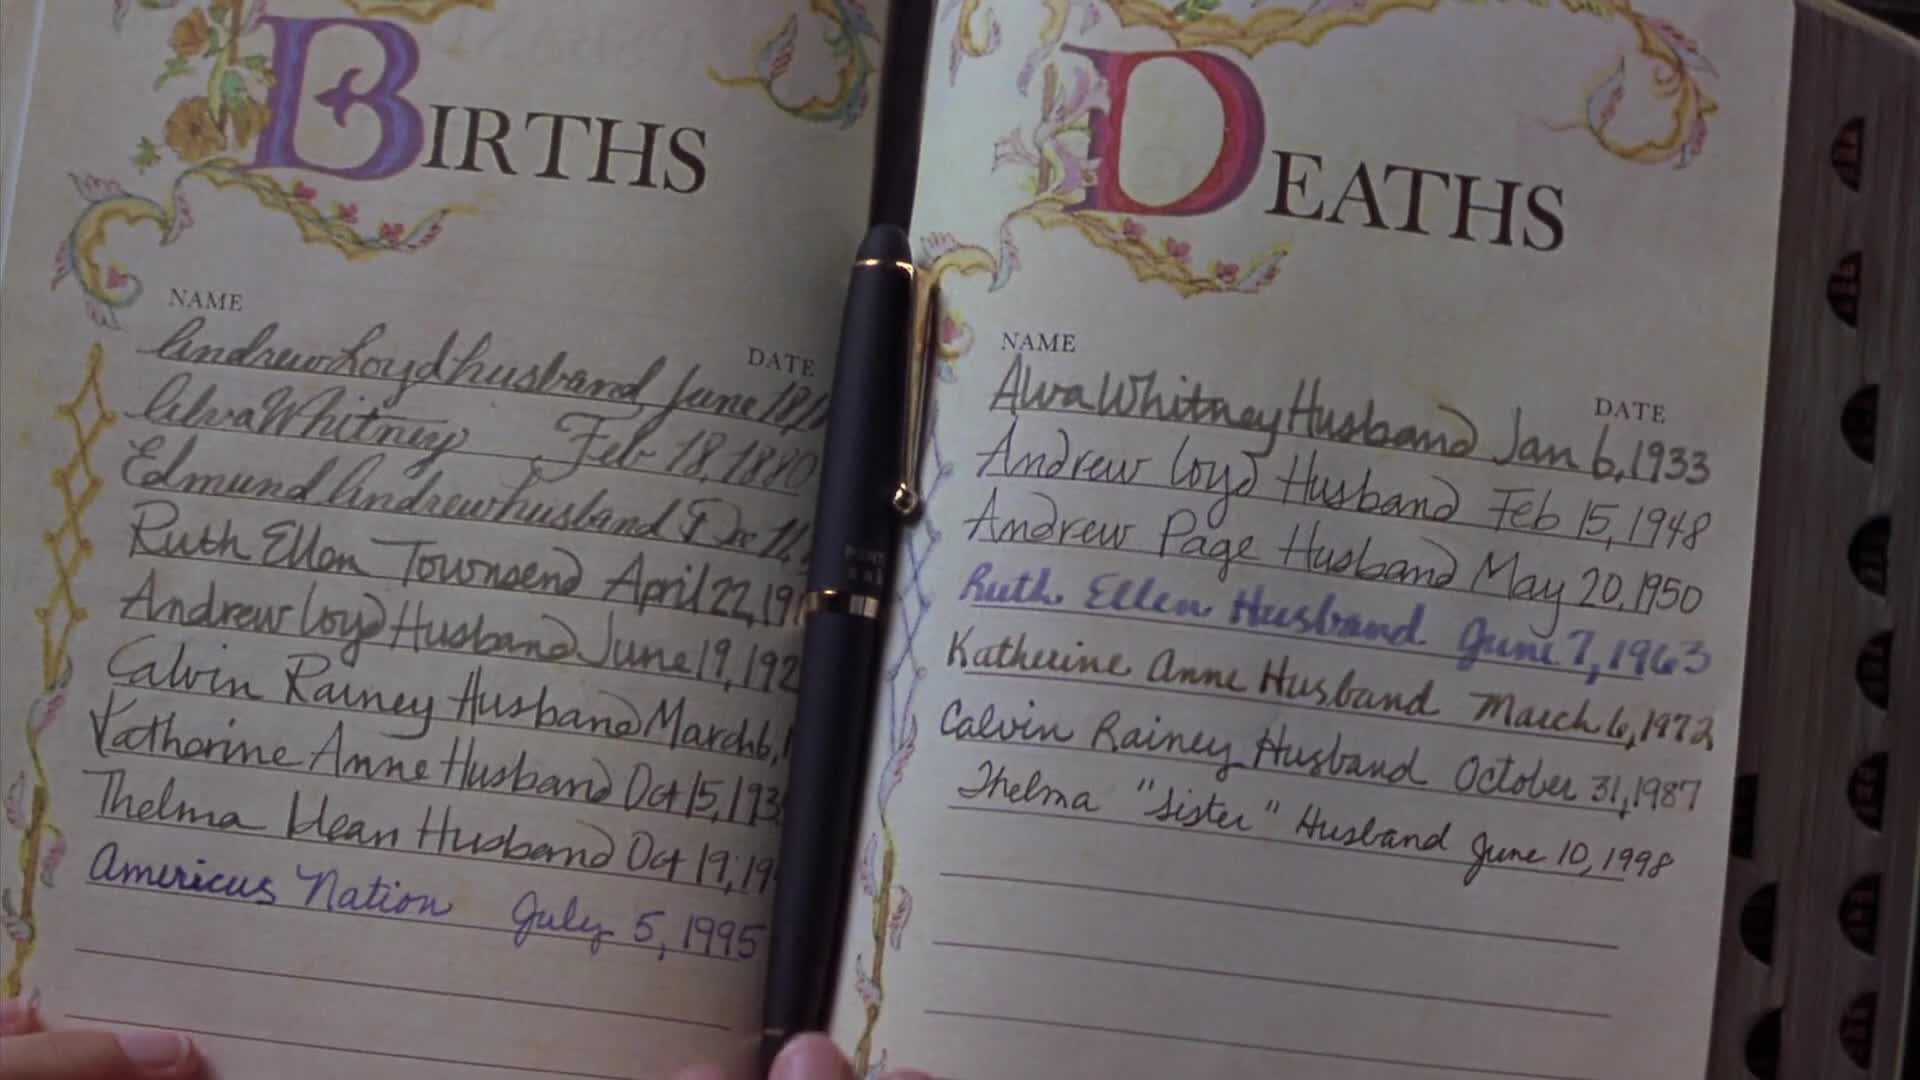 BIRTHS
NAME
DATE
Andrew Loyd Husband June 18, 1
Alva Whitney Feb 18, 1880
Edmund Andrew Husband Dec 11,
Ruth Ellen Townsend April 22, 19
Andrew Loyd Husband June 19, 192
Calvin Rainey Husband March 6, 1
Katherine Anne Husband Oct 15, 193
Thelma Idean Husband Oct 19, 19
Americus Nation July 5, 1995
DEATHS
NAME
DATE
Alva Whitney Husband Jan 6, 1933
Andrew Loyd Husband Feb 15, 1948
Andrew Page Husband May 20, 1950
Ruth Ellen Husband June 7, 1963
Katherine Anne Husband March 6, 1972
Calvin Rainey Husband October 31, 1987
Thelma "Sister" Husband June 10, 1998